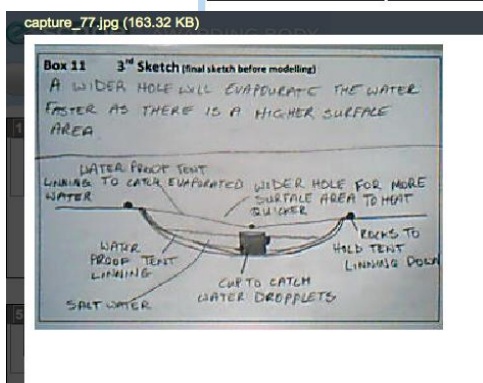 capture_77.jpg (163.32 KB)
Box 11 3rd Sketch (final sketch before modelling)
A WIDER HOLE WILL EVAPOURATE THE WATER
FASTER AS THERE IS A HIGHER SURFACE
AREA
WATER PROOF TENT
LINNING TO CATCH EVAPORATED
WATER
WIDER HOLE FOR MORE
SURFACE AREA TO HEAT
QUICKER
ROCKS TO
HOLD TENT
LINNING DOWN
WATER
PROOF TENT
LINNING
CUP TO CATCH
WATER DROPPLETS
SALT WATER
1
5